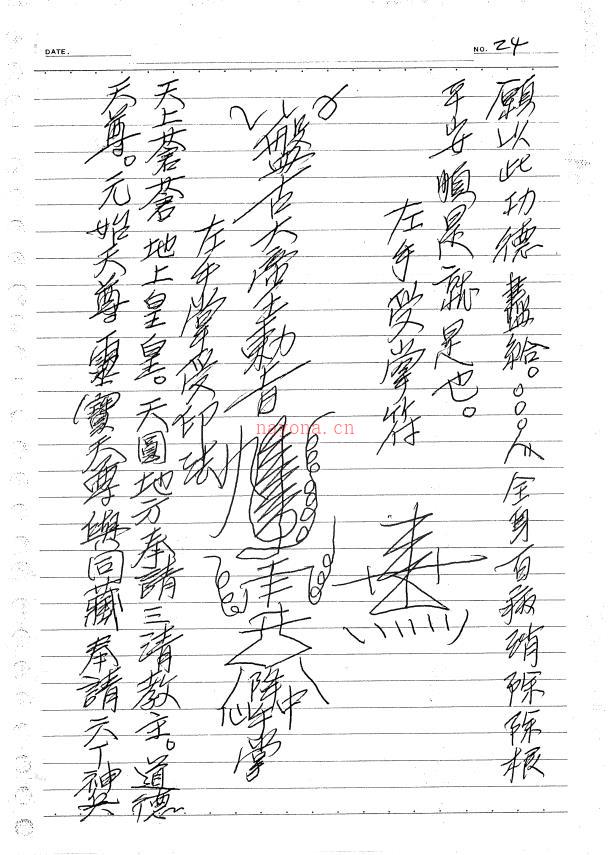 DATE.
NO. 24
願以此功德盡給。○○○人全身百病消除除根
平安順是就是也。
左手受掌符
盤古大帝主勅旨
降中掌
左手掌受印法
天上蒼蒼地上皇皇。天圓地方奉請三清教主。道德
天尊。元始天尊靈寶天尊與回藏奉請六丁神
nayona.cn